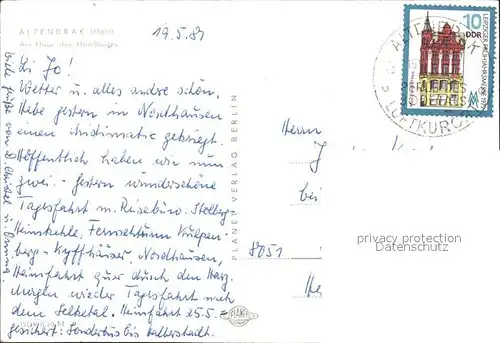 ALTENBRAK (Harz)
Am Haus des Handwerks
19.5.87
Li Jo!
Wetter u. alles andere schön.
Habe gestern in Nordhausen
einen gekriegt.
Hoffentlich haben wir nun
zwei. - Gestern wunderschöne
Tagesfahrt m. Reisebüro: Stolberg-
Heimkehle. Fernsehturm Kulpen-
berg - Kyffhäuser, Nordhausen,
Heimfahrt quer durch den Harz.
Morgen wieder Tagesfahrt nach
dem Selketal. Heimfahrt 25.5. ist
gesichert: Sonderbus bis Halberstadt.
Viele Grüße von
PLANET VERLAG BERLIN
PLANET
10
DDR
LEIPZIGER
ALTENBRAK
LUFTKURORT
Herrn
J
bei
8051
He
privacy protection
Datenschutz